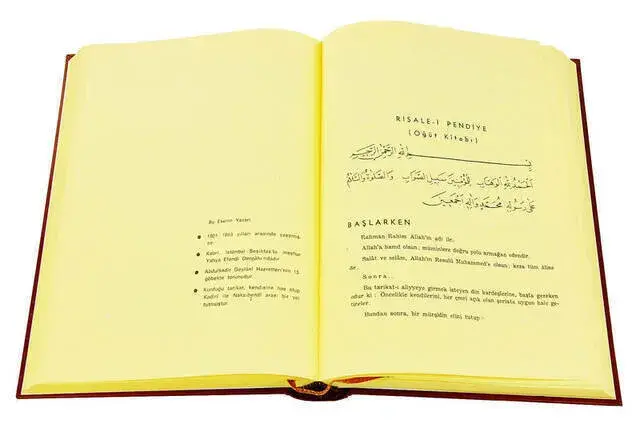 Bu Eserin Yazarı
• 1801 1863 yılları arasında yaşamış-
tır.
• Kabri, İstanbul Beşiktaş'ta meşhur
Yahya Efendi Dergâhındadır.
• Abdulkadir Geylânî Hazretleri'nin 15.
göbekte torunudur.
• Kurduğu tarikat, kendisine has olup
Kadiri ile Nakşibendî arası bir yol
tutmuştur.
RİSALE-İ PENDİYE
(Öğüt Kitabı)
بسم الله الرحمن الرحيم
الحمد لله الوهاب للمؤمنين سبيل الصواب والصلوة والسلام
على رسوله محمد وآله أجمعين
BAŞLARKEN
Rahman Rahim Allah'ın adı ile.
Allah'a hamd olsun; müminlere doğru yolu armağan edendir.
Salât ve selâm, Allah'ın Resulü Muhammed'e olsun; keza tüm âline
de.
Sonra..
Bu tarikat-i aliyyeye girmek isteyen din kardeşlerine, başta gereken
odur ki: Öncelikle kendilerini, her çeşri açık olan şeriata uygun hale ge-
tireler.
Bundan sonra, bir mürşidin elini tutup;